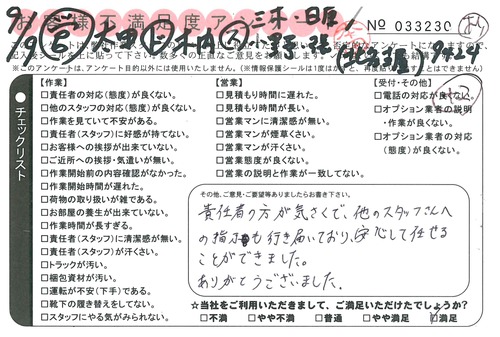 お客様不満足度アン
№ 033230
【作業】
□責任者の対応(態度)が良くない。
□他のスタッフの対応(態度)が良くない。
□作業を見ていて不安がある。
□責任者(スタッフ)に好感が持てない。
□お客様への挨拶が出来ていない。
□ご近所への挨拶・気遣いが無い。
□作業開始前の内容確認がなかった。
□作業開始時間が遅れた。
□荷物の取り扱いが雑である。
□お部屋の養生が出来ていない。
□作業時間が長すぎる。
□責任者(スタッフ)に清潔感が無い。
□責任者(スタッフ)が汗くさい。
□トラックが汚い。
□梱包資材が汚い。
□運転が不安(下手)である。
□靴下の履き替えをしてない。
□スタッフにやる気がみられない。
チェックリスト
【営業】
□見積もり時間に遅れた。
□見積もり時間が長い。
□営業マンに清潔感が無い。
□営業マンが煙草くさい。
□営業マンが汗くさい。
□営業態度が良くない。
□営業の説明と作業が一致してない。
【受付・その他】
□電話の対応が良くない。
□オプション業者の説明
・作業が良くない。
□オプション業者の対応
(態度)が良くない。
その他、ご意見・ご要望等ありましたらお書き下さい。
責任者の方が気さくで、他のスタッフさんへ
の指示も行き届いており、安心して任せる
ことができました。
ありがとうございました。
☆当社をご利用いただきまして、ご満足いただけたでしょうか?
□不満 □やや不満 □普通 □やや満足 □満足